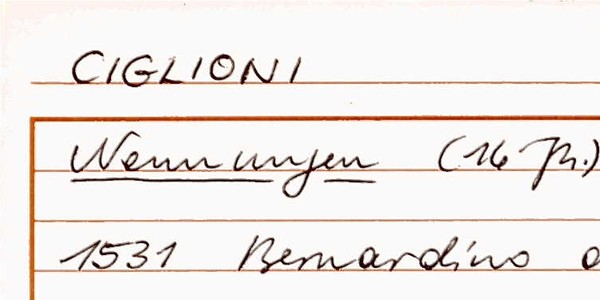 CIGLIONI
Nennungen (16 Jh.)
1531 Bernardino